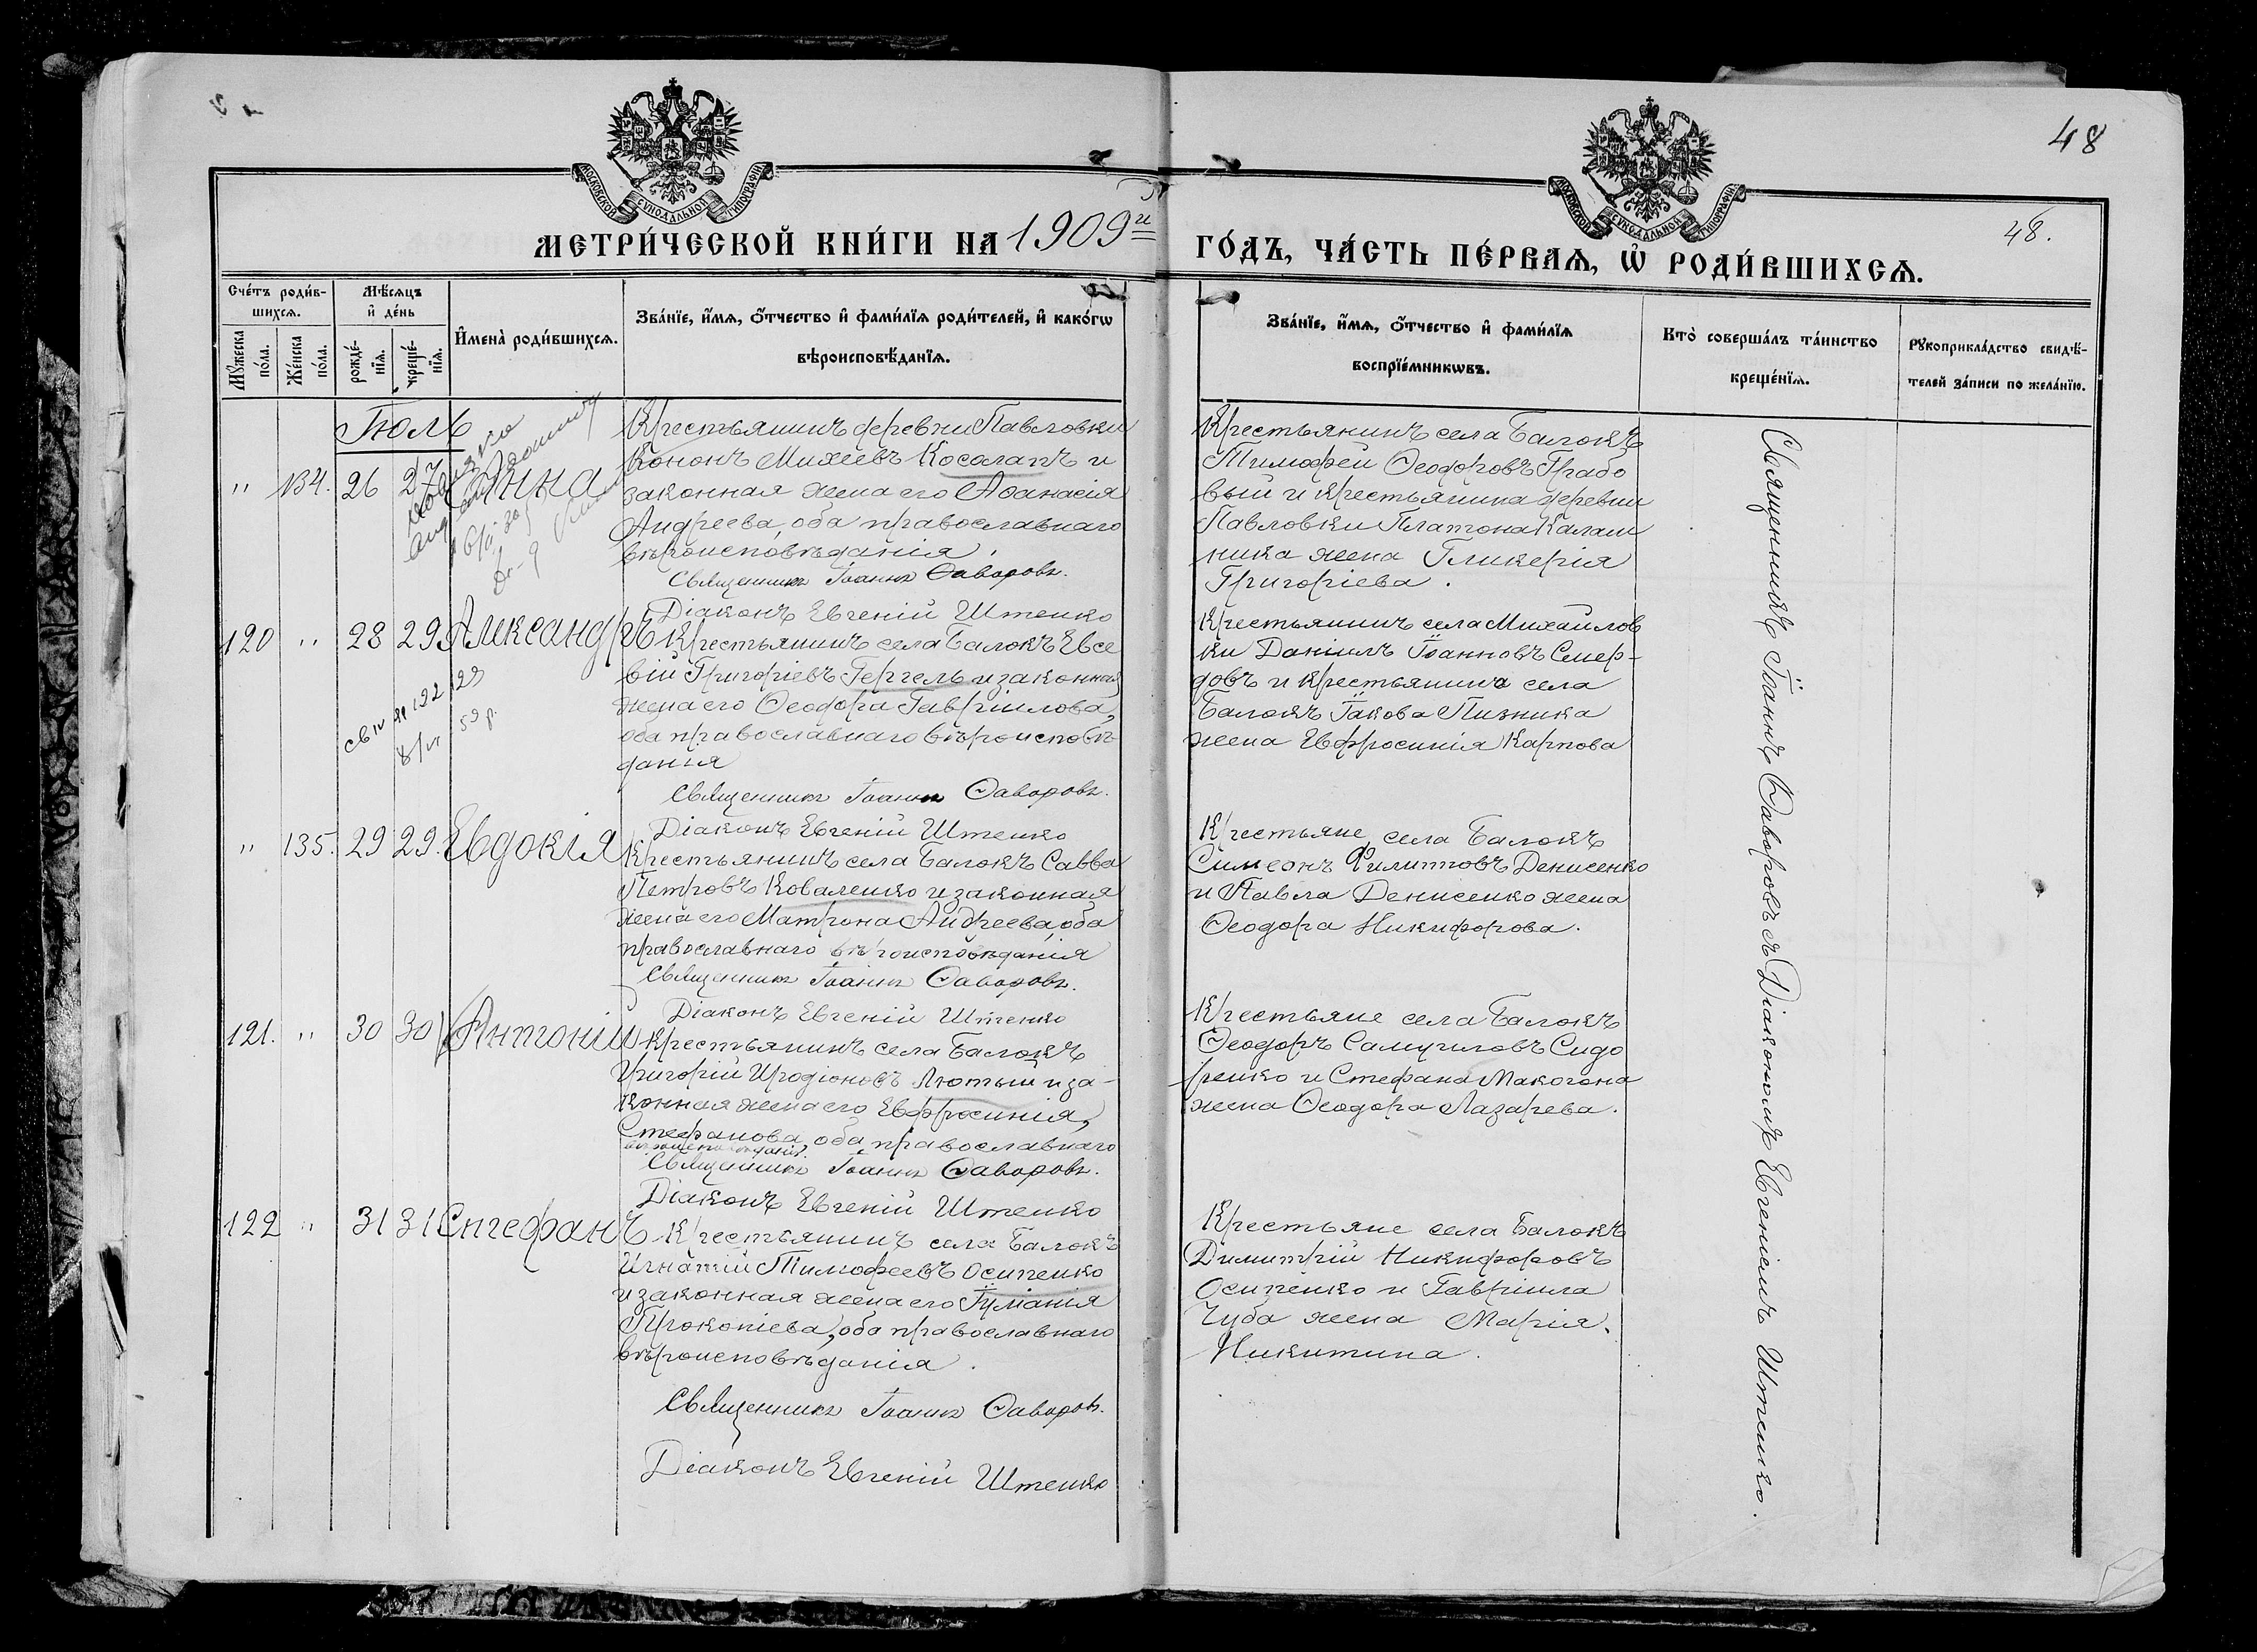 48
МОСКОВСКОЙ СѴНОДАЛЬНОЙ ТИПОГРАФІИ
МОСКОВСКОЙ СѴНОДАЛЬНОЙ ТИПОГРАФІИ
48.
МЕТРИ́ЧЕСКОЙ КНИ́ГИ НА 1909й
ГО́ДЪ, ЧА́СТЬ ПЕ́РВАѦ, Ѡ҆ РОДИ́ВШИХСѦ.
Сче́тъ роди́в-
шихсѧ.
Мꙋ́жеска по́ла.
Же́нска по́ла.
Мѣ́сѧцъ
и҆ де́нь
рожде́-
нїѧ.
креще́-
нїѧ.
И҆мена̀ роди́вшихсѧ.
Зва́нїе, и҆́мѧ, ѻ҆́тчество и҆ фами́лїѧ роди́телей, и҆ како́гѡ
вѣроисповѣ́данїѧ.
Зва́нїе, и҆́мѧ, ѻ҆́тчество и҆ фами́лїѧ
воспрїе́мникѡвъ.
Кто̀ соверша́лъ та́инство
креще́нїѧ.
Рꙋкоприкла́дство свидѣ́-
телей за́писи по жела́нїю.
Іюль
" 134. 26 27 Анна
Крестьянинъ деревни Павловки
Кононъ Михеевъ Косолапъ и
законная жена его Аѳанасія
Андреева, оба православнаго
вѣроисповѣданія.
Священникъ Іоаннъ Ѳаворовъ.
Діаконъ Евгеній Штенко
Крестьянинъ села Балокъ
Тимофей Ѳеодоровъ Грабо
вый и крестьянина деревни
Павловки Платона Калаш
ника жена Гликерія
Григоріева.
120 " 28 29 Александръ
Крестьянинъ села Балокъ Евсе
вій Григоріевъ Гергель и законная
жена его Ѳеодора Гавріилова,
оба православнаго вѣроисповѣ
данія
Священникъ Іоаннъ Ѳаворовъ.
Діаконъ Евгеній Штенко
Крестьянинъ села Михайлов
ки Даніилъ Іоанновъ Смер-
довъ и крестьянина села
Балокъ Іакова Пизника
жена Евфросинія Карпова
" 135. 29 29. Евдокія
Крестьянинъ села Балокъ Савва
Петровъ Коваленко и законная
жена его Матрона Андреева, оба
православнаго вѣроисповѣданія
Священникъ Іоаннъ Ѳаворовъ.
Діаконъ Евгеній Штенко
Крестьяне села Балокъ
Симеонъ Филипповъ Денисенко
и Павла Денисенко жена
Ѳеодора Никифорова.
121. " 30 30 Антоній
Крестьянинъ села Балокъ
Григорій Иродіоновъ Лютый и за-
конная жена его Евфросинія
Стефанова, оба православнаго
вѣроисповѣданія.
Священникъ Іоаннъ Ѳаворовъ.
Діаконъ Евгеній Штенко
Крестьяне села Балокъ
Ѳеодоръ Самуиловъ Сидо
ренко и Стефана Макогона
жена Ѳеодора Лазарева.
122 " 31 31 Стефанъ
Крестьянинъ села Балокъ
Игнатій Тимофеевъ Осипенко
и законная жена его Іуліанія
Прокопіева, оба православнаго
вѣроисповѣданія.
Священникъ Іоаннъ Ѳаворовъ.
Діаконъ Евгеній Штенко
Крестьяне села Балокъ
Димитрій Никифоровъ
Осипенко и Гавріила
Чуба жена Марія
Никитина.
Священникъ Іоаннъ Ѳаворовъ съ Діакономъ Евгеніемъ Штенко.